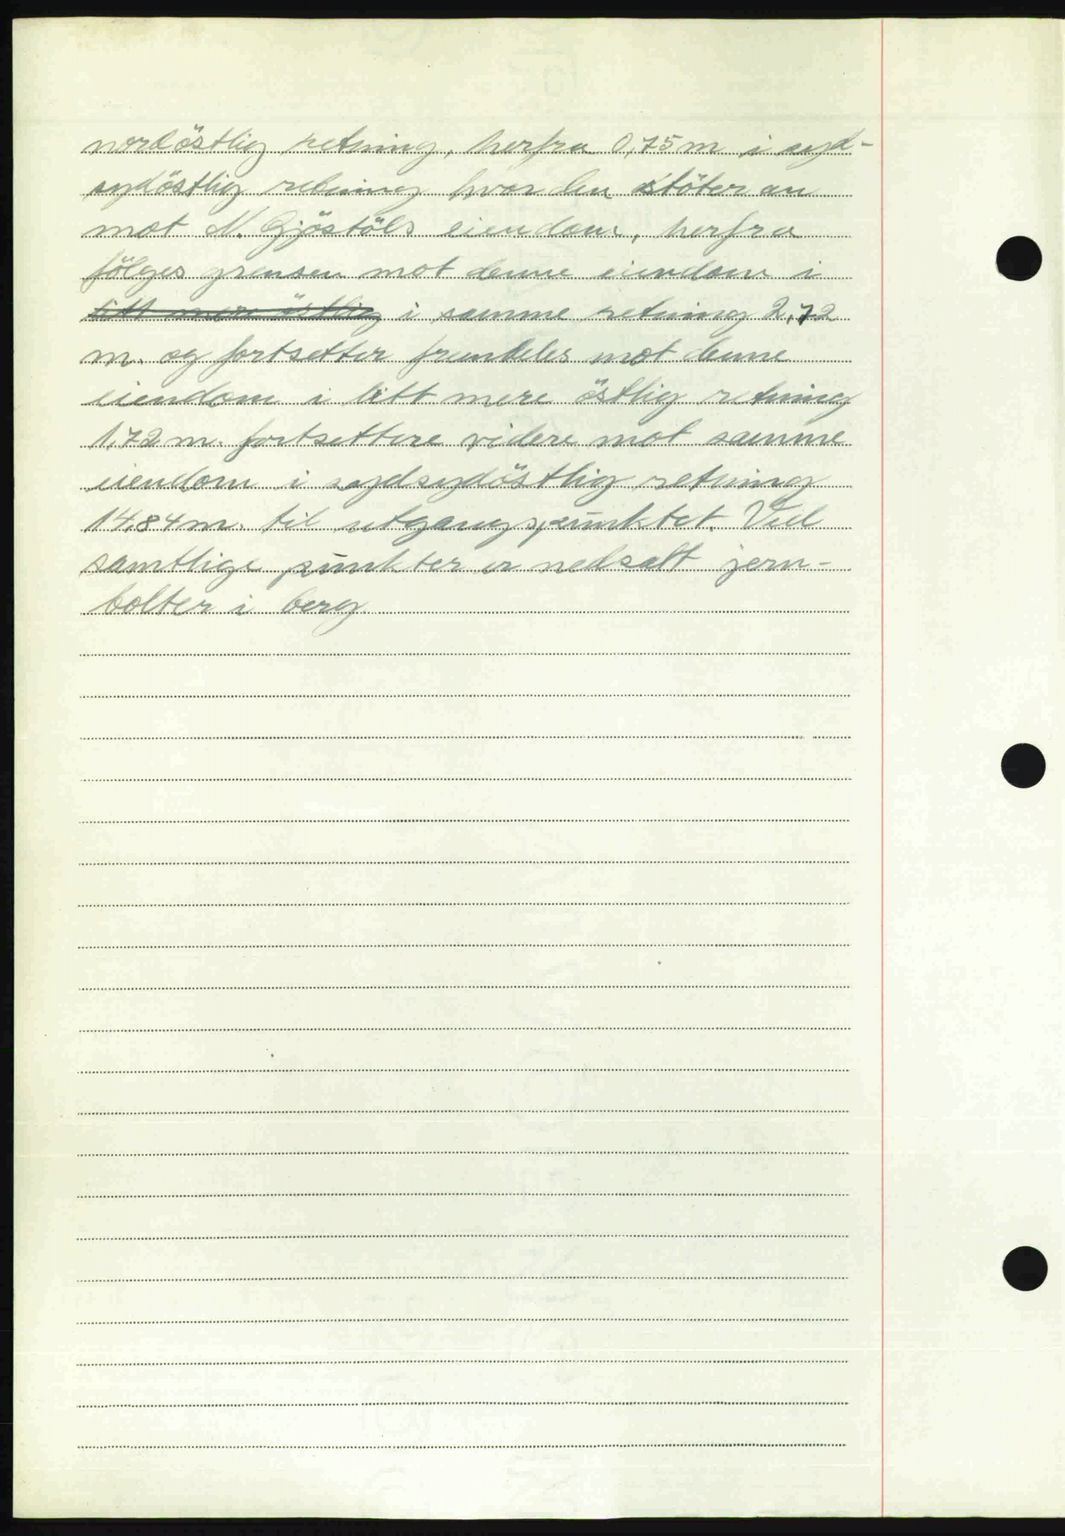 nordöstlig retning, herfra 0,75 m i syd-
sydöstlig retning hvor den stöter an
mot N. Gjöstöls eiendom, herfra
fölges grensen mot denne eiendom i
litt mere östlig i samme retning 2,72
m. og fortsetter fremdeles mot denne
eiendom i litt mere östlig retning
1,72 m. fortsettere videre mot samme
eiendom i sydsydöstlig retning
14,84 m. til utgangspunktet. Ved
samtlige punkter er nedsatt jern-
bolter i berg